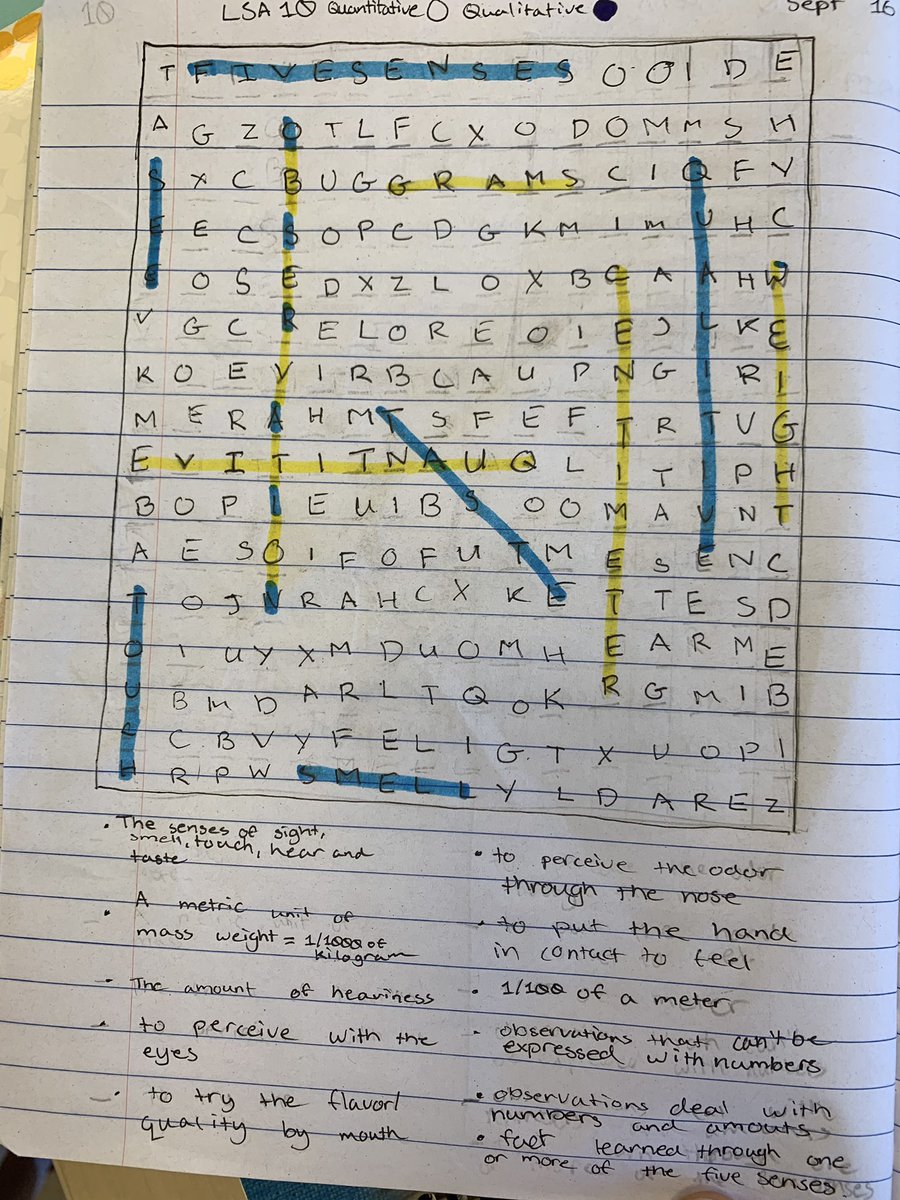 10 LSA 10 Quantitative Qualitative Sept 16
T F I V E S E N S E S O O I D E
A G Z O T L F C X O D O M M S H
S X C B U G G R A M S C I Q F V
E E C S O P C D G K M I M U H C
E O S E D X Z L O X B C A A H W
V G C R E L O R E O I E J L K E
K O E V I R B C A U P N G I R I
M E R A H M T S F E F T R T V G
E V I T I T N A U Q L I T I P H
B O P I E U I B S O O M A V N T
A E S O I F O F U T M E S E N C
T O J N R A H C X K E T T E S D
O I U Y X M D U O M H E A R M E
U B M D A R L T Q O K R G M I B
C C B V Y F E L I G T X U O P I
H R P W S M E L L Y L D A R E Z
• The senses of sight,
smell, touch, hear and
taste
• A metric unit of
mass weight = 1/1000 of
kilogram
- The amount of heaviness
• to perceive with the
eyes
• to try the flavor/
quality by mouth
• to perceive the odor
through the nose
• to put the hand
in contact to feel
• 1/100 of a meter
- observations that can't be
expressed with numbers
• observations deal with
numbers and amouts
• fact learned through one
or more of the five senses